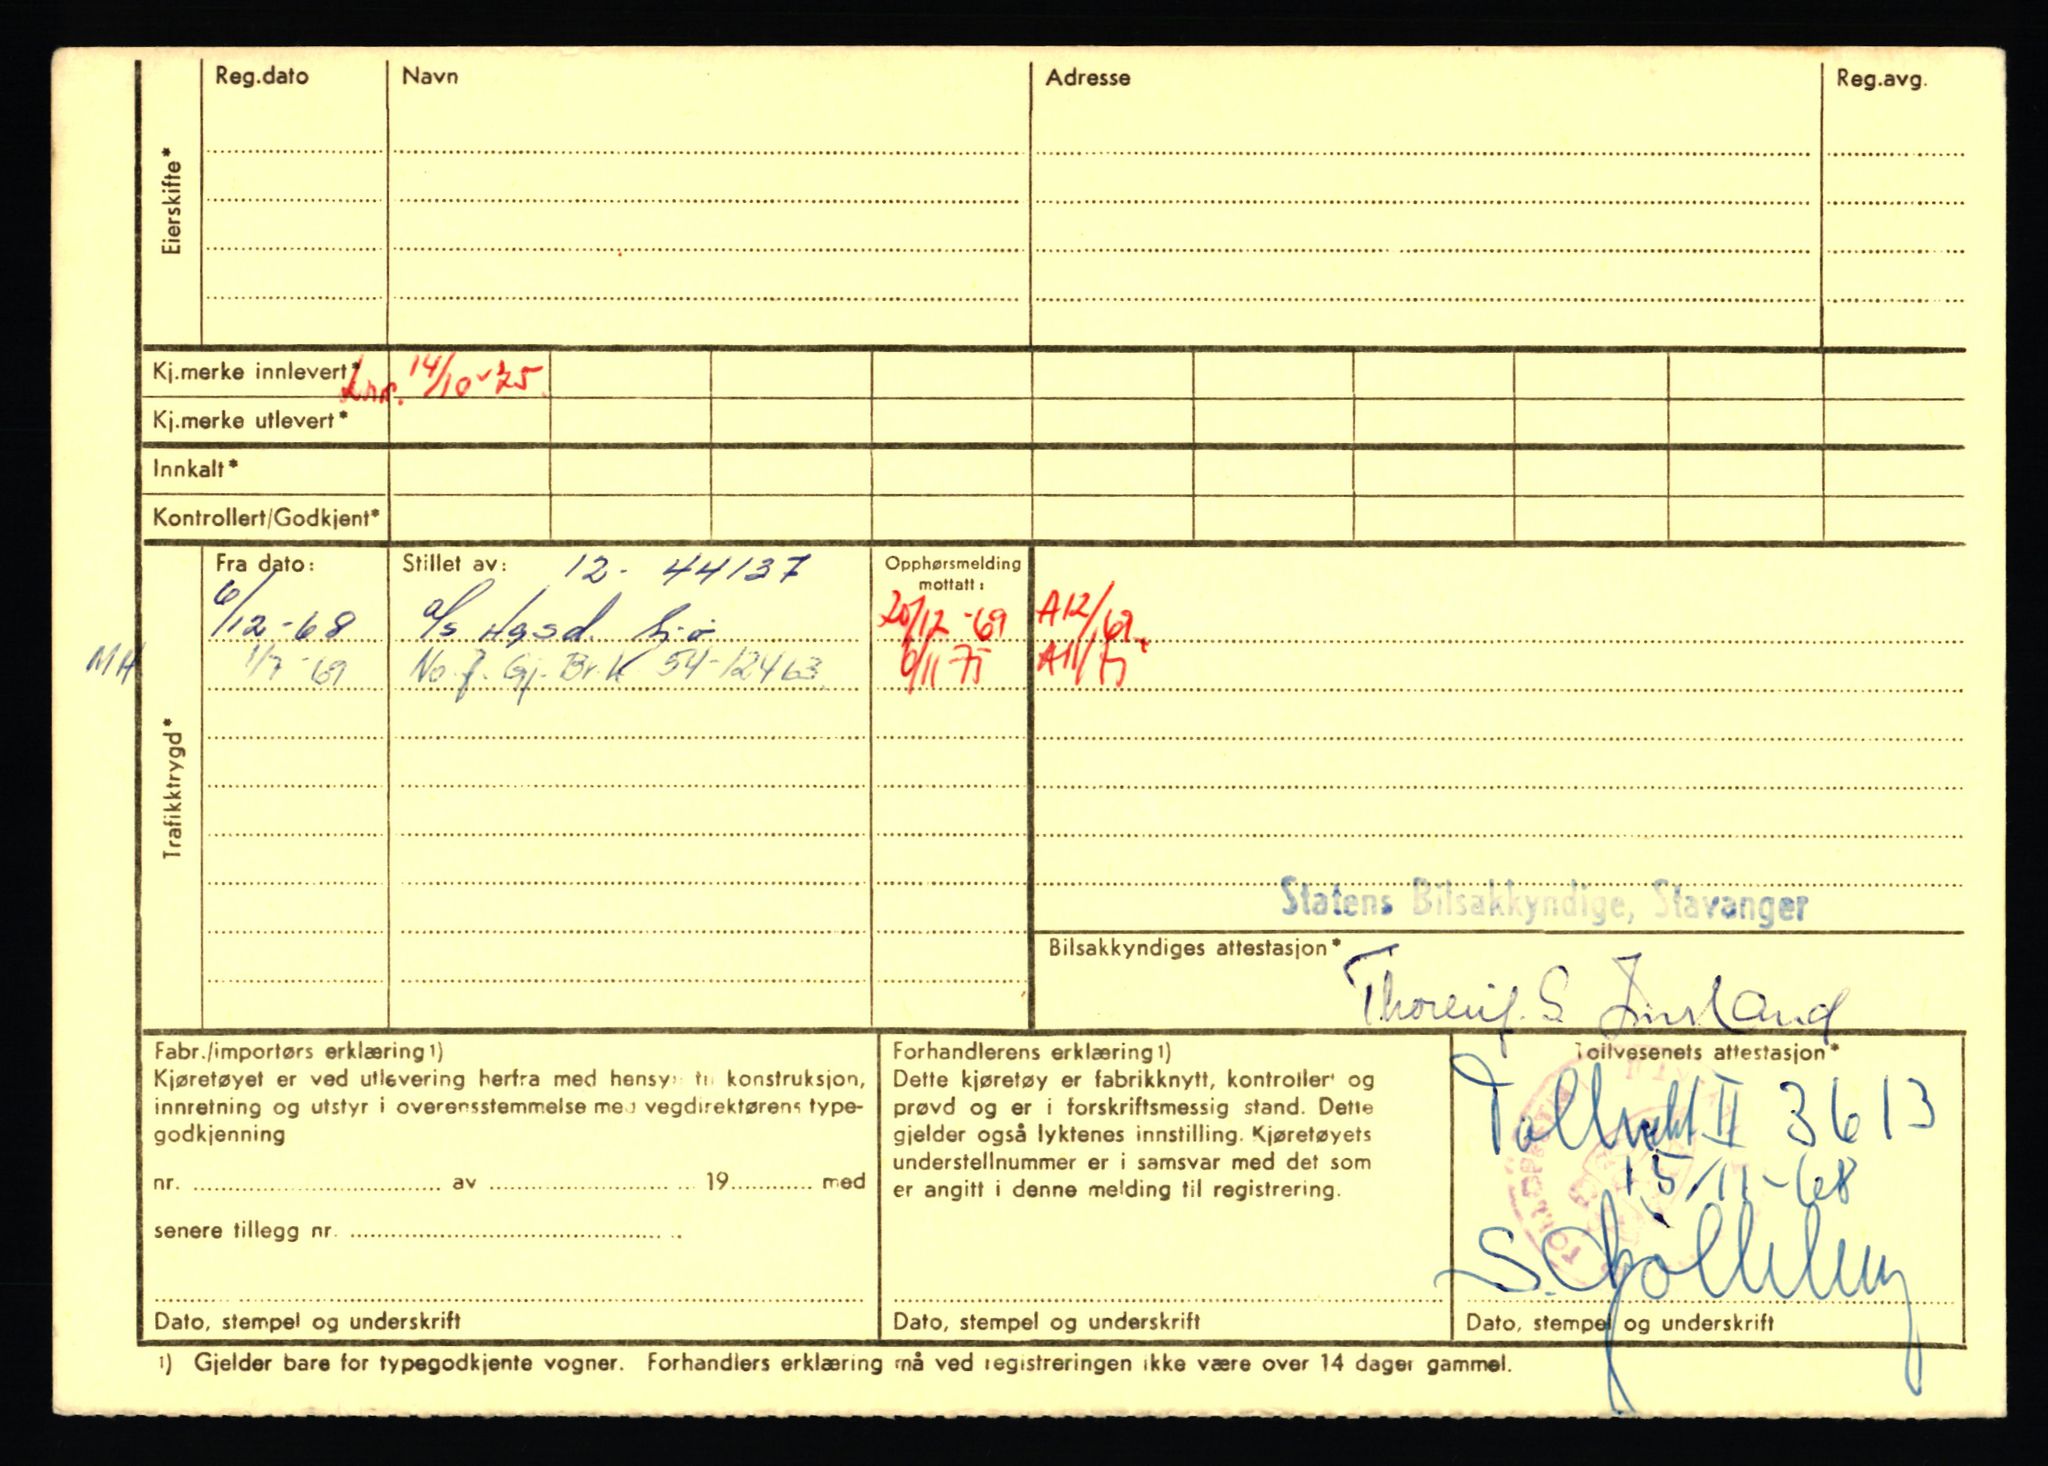 Reg.dato Navn Adresse Reg.avg.
Eierskifte*
Kj.merke innlevert* 14/10-75
Kj.merke utlevert*
Innkalt*
Kontrollert/Godkjent*
Trafikktrygd*
Fra dato: Stillet av: 12- 44137 Opphørsmelding mottatt:
6/12-68 a/s Hgsd. 20/12-69 A12/69
MH 1/7-69 No. f. Gj. Br. k 54-12463 6/11 75 A11/75
Statens Bilsakkyndige, Stavanger
Bilsakkyndiges attestasjon*
S.
Fabr./importørs erklæring 1)
Kjøretøyet er ved utlevering herfra med hensyn til konstruksjon,
innretning og utstyr i overensstemmelse med vegdirektørens type-
godkjenning
nr. av 19 med
senere tillegg nr.
Dato, stempel og underskrift
Forhandlerens erklæring 1)
Dette kjøretøy er fabrikknytt, kontrollert og
prøvd og er i forskriftsmessig stand. Dette
gjelder også lyktenes innstilling. Kjøretøyets
understellnummer er i samsvar med det som
er angitt i denne melding til registrering.
Dato, stempel og underskrift
Tollvesenets attestasjon*
II 3613
15/11-68
Dato, stempel og underskrift
1) Gjelder bare for typegodkjente vogner. Forhandlers erklæring må ved registreringen ikke være over 14 dager gammel.